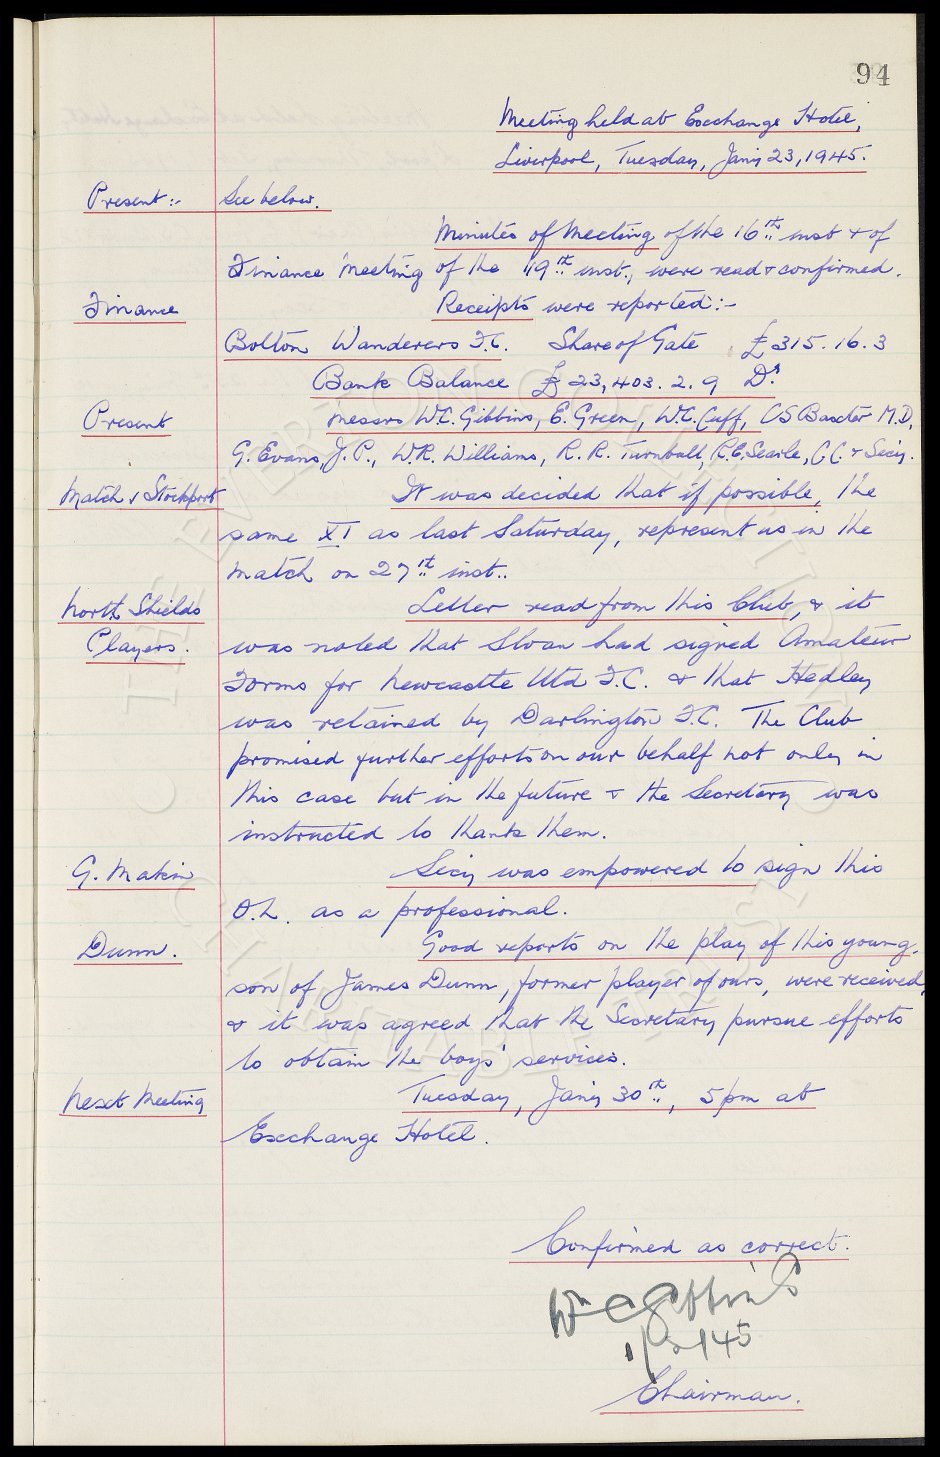 94
Meeting held at Exchange Hotel,
Liverpool, Tuesday, Jan'y 23, 1945.
Present:- See below.
Minutes of Meeting of the 16th inst & of
Finance Meeting of the 19th inst., were read & confirmed.
Finance Receipts were reported:-
Bolton Wanderers F.C. Share of Gate £315.16.3
Bank Balance £23,403.2.9 Dr.
Present Messrs W.C. Gibbins, E. Green, W.C. Cuff, CS Baxter M.D,
G. Evans, J.P., W.R. Williams, R.R. Turnbull, R.E. Searle, C.C. & Secy.
Match v Stockport It was decided that if possible, the
same XI as last Saturday, represent us in the
match on 27th inst..
North Shields Letter read from this Club, & it
Players. was noted that Sloan had signed Amateur
Forms for Newcastle Utd F.C. & that Hedley
was retained by Darlington F.C. The Club
promised further efforts on our behalf not only in
this case but in the future & the Secretary was
instructed to thank them.
G. Makin Secy was empowered to sign this
O.L. as a professional.
Dunn. Good reports on the play of this young
son of James Dunn, former player of ours, were received,
& it was agreed that the Secretary pursue efforts
to obtain the boys' services.
Next Meeting Tuesday, Jan'y 30th, 5pm at
Exchange Hotel.
Confirmed as correct.
Wm C Gibbins
Chairman.
THE EVERTON COLLECTION
CHARITABLE TRUST